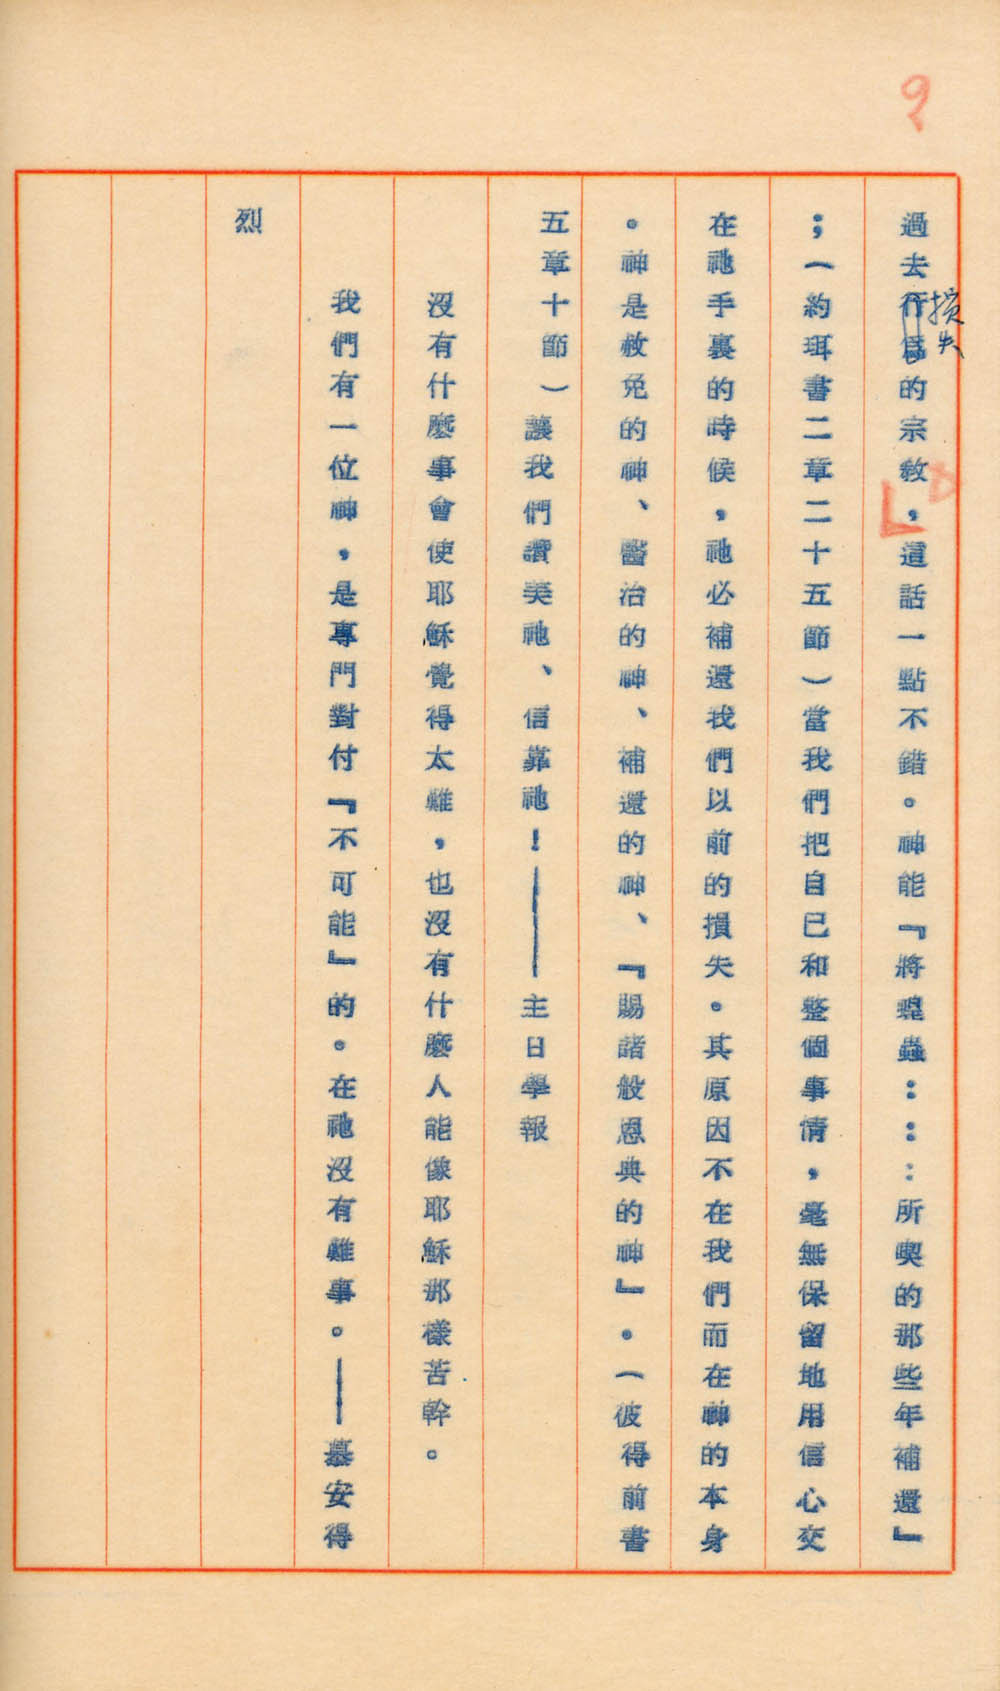 9
過去行爲的宗敎，這話一點不錯。神能『將蝗蟲：：：所喫的那些年補還』
損失
；（約珥書二章二十五節）當我們把自己和整個事情，毫無保留地用信心交
在祂手裏的時候，祂必補還我們以前的損失。其原因不在我們而在神的本身
。神是赦免的神、醫治的神、補還的神、『賜諸般恩典的神』。（彼得前書
五章十節）讓我們讚美祂、信靠祂！——主日學報
沒有什麼事會使耶穌覺得太難，也沒有什麼人能像耶穌那樣苦幹。
我們有一位神，是專門對付『不可能』的。在祂沒有難事。——慕安得
烈